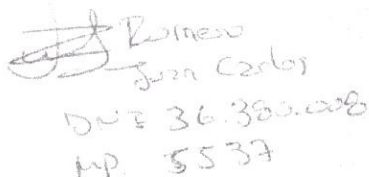 Romero
Juan Carlos
DNI 36.380.008
MP 5537